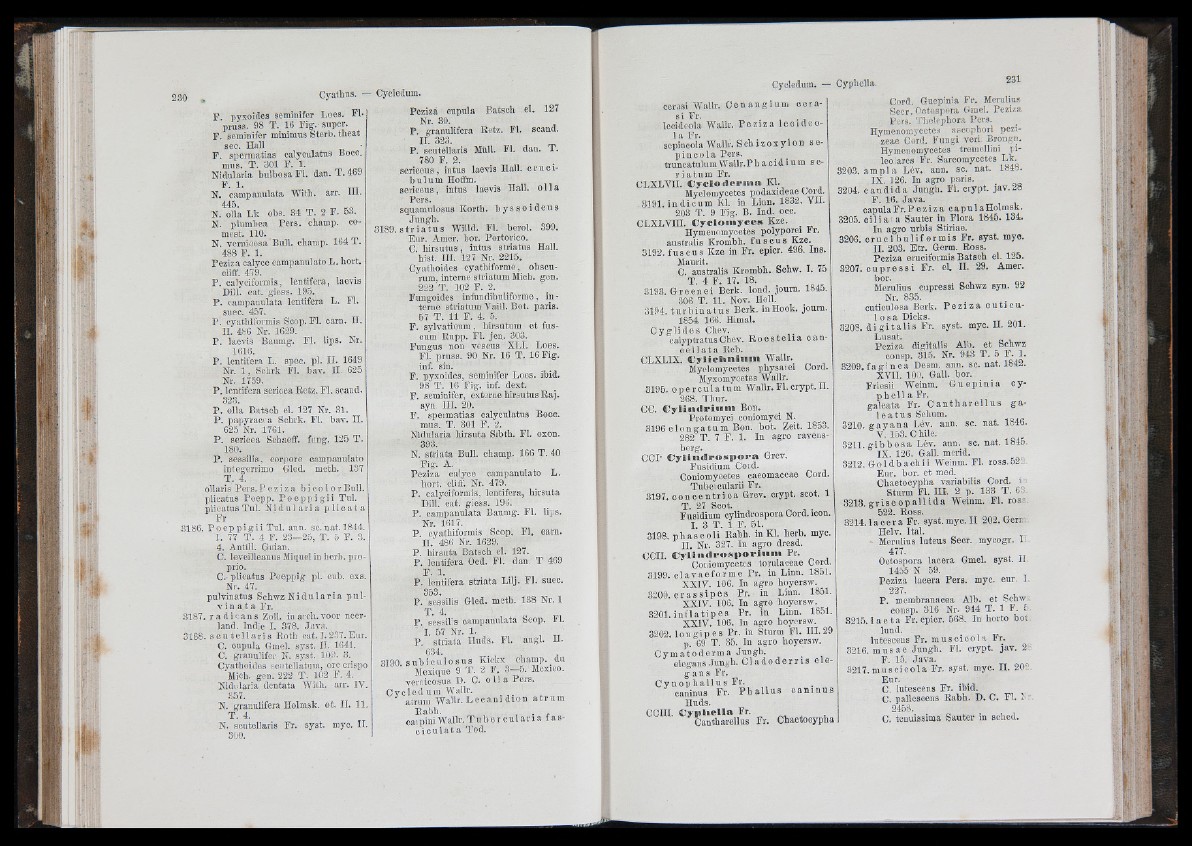 230
Cyathus. — Cycledum.
F. pyxoides seminifer Loes. Fl.
pruss. 98 T. 16 Fig. super.
F. seminifer minimus Sterb. theat
sec. Hall
F. spermatias calyculatus Bocc.
mus. T. 301 F. 1.
Nidularia bulbosa Fl. dan. T. 469
F. 1.
N. campanulata With. arr. III.
445.
N. olla Lk obs. 34 T. 2 F. 53.
N. plumbea Pers. champ. co-
mest. 110.
N. vernicosa Bull. champ. 164 T.
488 F. 1.
Peziza calyce campanulato L. hort.
cliff. 479.
P. calyciformis, lentifera, laevis
Dill. cat. giess. 195.
P. campanulata lentifera L. Fl.
suec. 457.
P. cyathiformis Scop. Fl. carn. II.
II. 486 Nr. 1629.
P. laevis Baumg. Fl. lips. Nr.
1616.
P. lentifera L. spec. pl. II. 1649
Nr. 1, Schrk Fl. bav. II. 625
Nr. 1759.
P. lentifera sericea Retz. Fl. scand.
323.
P. olla Batsch el. 127 Nr. 31.
P. papyracea Schrk. Fl. bav. II.
625 Nr. 1761.
P. sericea Schaeff. fung. 125 T.
180.
P. sessilis, corpore campanulato
integerrimo Gled. meth. 137
T. 4.
ollaris Pers. Peziza bicolor Bull.
plicatus Poepp. Poeppigii Tul.
plicatus Tul. Nidularia plicata
Fr
3186. Poeppigii Tul. ann. sc. nat. 1844.
I. 77 T. 4 F. 23—25, T. 5 F. 3.
4. Antill. Guian.
C. leveilleanus Miquel in herb. pro-
prio.
C. plicatus Poeppig pl. cub. exs.
Nr. 47.
pulvinatus Schwz Nidularia pul-
vinata Fr.
3187. radicans Zoll. in arch. voor neer-
land. Indie I. 378. Java.
3188. scutellaris Roth cat. I. 237. Eur.
C. cupula Gmel. syst. II. 1641.
C. granulifer N. syst. 103. 3.
Cyathoides scutellatum, ore crispo
Mich. gen. 222 T. 102 F. 4.
Nidularia dentata With. arr. IV.
357.
N. granulifera Holmsk. ot. II. 11.
T. 4.
N. scutellaris Fr. syst. myc. II.
300.
Peziza cupula Batsch el. 127
Nr. 30.
P. granulifera Retz. Fl. scand.
II. 323.
P. scutellaris Müll. Fl. dan. T.
780 F. 2.
sericeus, intus laevis Hall. cruci-
bulum Hoffm.
sericeus, intus laevis Hall. olla
Pers.
squamulosus Korth. byssoideus
Jungh.
3189. striatus Willd. Fl. berol. 399.
Eur. Amer. bor. Portorico.
C. hirsutus, intus striatus Hall.
hist. III. 127 Nr. 2215.
Cyathoides cyathiforme, obscu-
rum, interne striatum Mich. gen.
222 T. 102 F. 2.
Fungoides infundibuliforme, in-
terne striatum Vaill. Bot. paris.
57 T. 11 F. 4. 5.
F. sylvaticum, hirsutum et fus-
cum Rupp. Fl. jen. 303.
Fungus non vescus XLI. Loes.
Fl. pruss. 90 Nr. 16 T. 16 Fig.
inf. sin.
F. pyxoides, seminifer Loes. ibid.
98 T. 16 Fig. inf. dext.
F. seminifer, externe hirsutus Raj.
syn. III. 20.
F. spermatias calyculatus Bocc.
mus. T. 301 F. 2.
Nidularia hirsuta Sibth. Fl. oxon.
393.
N. striata Bull. champ. 166 T. 40
Fig. A.
Peziza calyce campanulato L.
hort. cliff. Nr. 479.
P. calyciformis, lentifera, hirsuta
Dill. cat. giess. 195.
P. campanulata Baumg. Fl. lips.
Nr. 1617.
P. cyathiformis Scop. Fl. carn.
II. 486 Nr. 1629.
P. hirsuta Batsch el. 127.
P. lentifera Oed. Fl. dan T 469
F. 1.
P. lentifera striata Lilj. Fl. suec.
353.
P. sessilis Gled. meth. 138 Nr. 1
T. 4.
P. sessilis campanulata Scop. Fl.
I. 57 Nr. 1.
P. striata Huds. Fl. angl. II.
634.
3190. subiculosus Kickx champ. du
Mexique 9 T. 2 F. 3—5. Mexico.
vernicosus D. C. olla Pers.
Cycledum Wallr.
atrum Wallr. Lecanidion atrum
Rabh.
carpini Wallr. Tubercularia fas-
ciculata Tod.
Cycledum. — Cyphella.
231
cerasi Wallr. Cenangium cera-
si Fr.
lecideola Wallr. Peziza lecideo-
la Fr.
sepincola Wallr. Schizoxylon se-
pincola Pers.
truncatulum Wallr. Phacidium se-
riatum Fr.
CLXLVII. Cycloderma Kl.
Myelomycetes podaxideae Cord.
3191. indicum Kl. in Linn. 1832. VII.
203 T. 9 Fig. B. Ind. occ.
CLXLVIII. Cyclomyces Kze.
Hymenomycetes polyporei Fr.
australis Krombh. fuscus Kze.
3192. fuscus Kze in Fr. epicr. 496. Ins.
Maurit.
C. australis Krombh. Schw. I. 75
T. 4 F. 17. 18.
3193. Greenei Berk. lond. journ. 1845.
306 T. 11. Nov. Holl.
3194. turbinatus Berk. in Hook. journ.
1854. 166. Himal.
Cyglides Chev.
calyptratus Chev. Roestelia can-
cellata Reb.
CLXLIX. Cylichnium Wallr.
Myelomycetes physarei Cord.
Myxomycetes Wallr.
3195. operculatum Wallr. Fl. crypt. II.
268. Thur.
CC. Cylindrium Bon.
Protomyci coniomyci N.
3196 elongatum Bon. bot. Zeit. 1853.
282 T. 7 F. 1. In agro ravens-
berg.
CCI. Cylindrospora Grev.
Fusidium Cord.
Coniomycetes caeomaceae Cord.
Tubercularii Fr.
3197. concentrica Grev. crypt. scot. 1
T. 27 Scot.
Fusidium cylindrospora Cord. icon.
I. 3 T. 1 F. 51.
3198. phaseoli Rabh. in Kl. herb. myc.
II. Nr. 327. In agro dresd.
CCII. Cylindrosporium Pr.
Coniomycetes torulaceae Cord.
3199. clavaeforme Pr. in Linn. 1851.
XXIV. 106. In agro hoyersw.
3200. crassipes Pr. in Linn. 1851.
XXIV. 106. In agro hoyersw.
3201. inflatipes Pr. in Linn. 1851.
XXIV. 106. In agro hoyersw.
3202. longipes Pr. in Sturm Fl. III. 29
p. 69 T. 35. In agro hoyersw.
Cymatoderma Jungh.
elegans Jungh. Cladoderris ele-
gans Fr.
Cynophallus Fr.
caninus Fr. Phallus caninus
Huds.
CCIII. Cyphella Fr.
Cantharellus Fr. Chaetocypha
Cord. Guepinia Fr. Merulius
Secr. Octospora Gmel. Peziza
Pers. Thelephora Pers.
Hymenomycetes ascophori pezi-
zeae Cord. Fungi veri Brongn.
Hymenomycetes tremellini pi-
leolares Fr. Sarcomycetes Lk.
3203. ampla Lév. ann. sc. nat. 1848.
IX. 126. In agro paris.
3204. candida Jungh. Fl. crypt. jav. 28
F. 16. Java.
capula Fr. Peziza capula Holmsk.
3205. ciliata Sauter in Flora 1845. 134.
In agro urbis Stiriae.
3206. crucibuliformis Fr. syst. myc.
II. 203. Etr. Germ. Ross.
Peziza cruciformis Batsch el. 125.
3207. cupressi Fr. el. II. 29. Amer.
bor.
Merulius cupressi Schwz syn. 92
Nr. 835.
cuticulosa Berk. Peziza cuticu-
losa Dicks.
3208. digitalis Fr. syst. myc. II. 201.
Lusat.
Peziza digitalis Alb. et Schwz
consp. 315. Nr. 943 T. 5 F. 1.
3209. faginea Desm. ann. sc. nat. 1842.
XVII. 100. Gall. bor.
Friesii Weinm. Guepinia cy-
phella Fr.
galeata Fr. Cantharellus ga-
leatus Schum.
3210. gayana Lév. ann. sc. nat. 1846.
V. 153. Chile.
3211. gibbosa Lév. ann. sc. nat. 1845.
IX. 126. Gall. merid.
3212. Goldbachii Weinm. Fl. ross. 522.
Eur. bor. et med.
Chaetocypha variabilis Cord. in
Sturm Fl. III. 2 p. 133 T. 63.
3213. griseopallida Weinm. Fl. ross.
522. Ross.
3214. lacera Fr. syst. myc. II 202. Germ.
Helv. Ital.
Merulius luteus Secr. mycogr. II.
477.
Octospora lacera Gmel. syst. II.
1455 N 59.
Peziza lacera Pers. myc. eur. I.
227.
P. membranacea Alb. et Schwz
consp. 316 Nr. 944 T. 1 F. 5.
3215. laeta Fr. epicr. 568. In horto bot.
lund.
lutescens Fr. muscicola Fr.
3216. musae Jungh. Fl. crypt. jav. 28
F. 15. Java.
3217. muscicola Fr. syst. myc. II. 202.
Eur.
C. lutescens Fr. ibid.
C. pallescens Rabh. D. C. Fl. Nr.
2458.
C. tenuissima Sauter in sched.